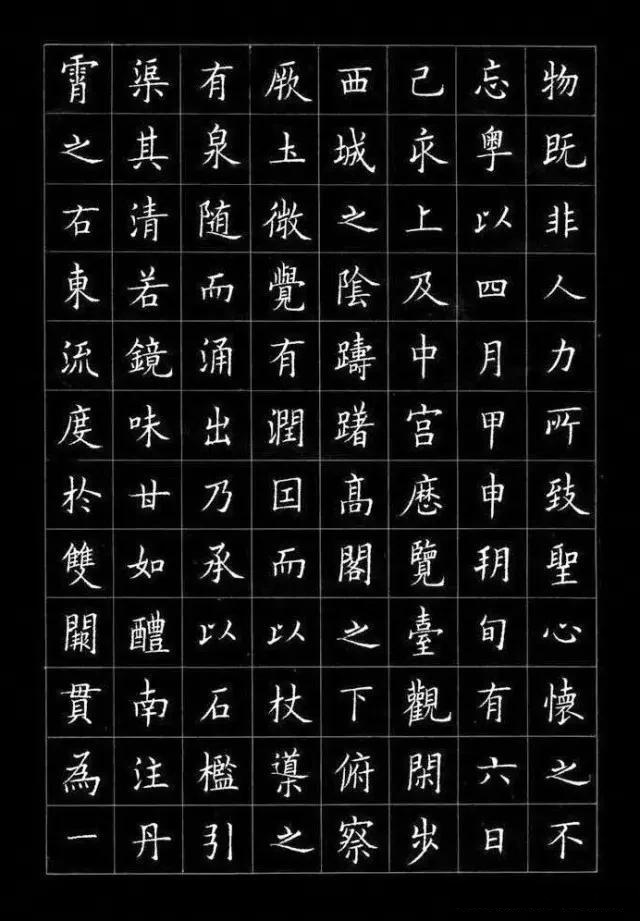 物既非人力所致聖心懷之不
忘粵以四月甲申朔旬有六日
己亥上及中宫歷覽臺觀閑步
西城之陰躊躇髙閣之下俯察
厥土微覺有潤因而以杖導之
有泉随而涌出乃承以石檻引
渠其清若鏡味甘如醴南注丹
霄之右東流度於雙闕貫為一